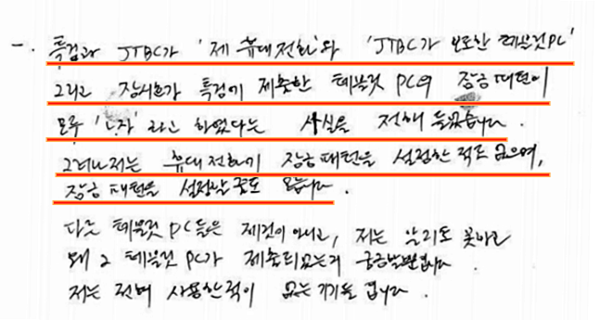 一. 특검과 JTBC가 '제 휴대전화'와 'JTBC가 보도한 태블릿PC'
그리고 장시호가 특검에 제출한 태블릿 PC의 잠금패턴이
모두 'ㄴ자' 라고 하였다는 사실을 전해 들었습니다.
그러나 저는 휴대전화에 잠금패턴을 설정한 적도 없으며,
잠금패턴을 설정할 줄도 모릅니다.
다른 태블릿 PC들은 제것이 아니고, 저는 알지도 못하고
왜 2 태블릿 PC가 제출되었는지 궁금할뿐입니다
저는 전혀 사용한적이 없는 기기들 입니다.